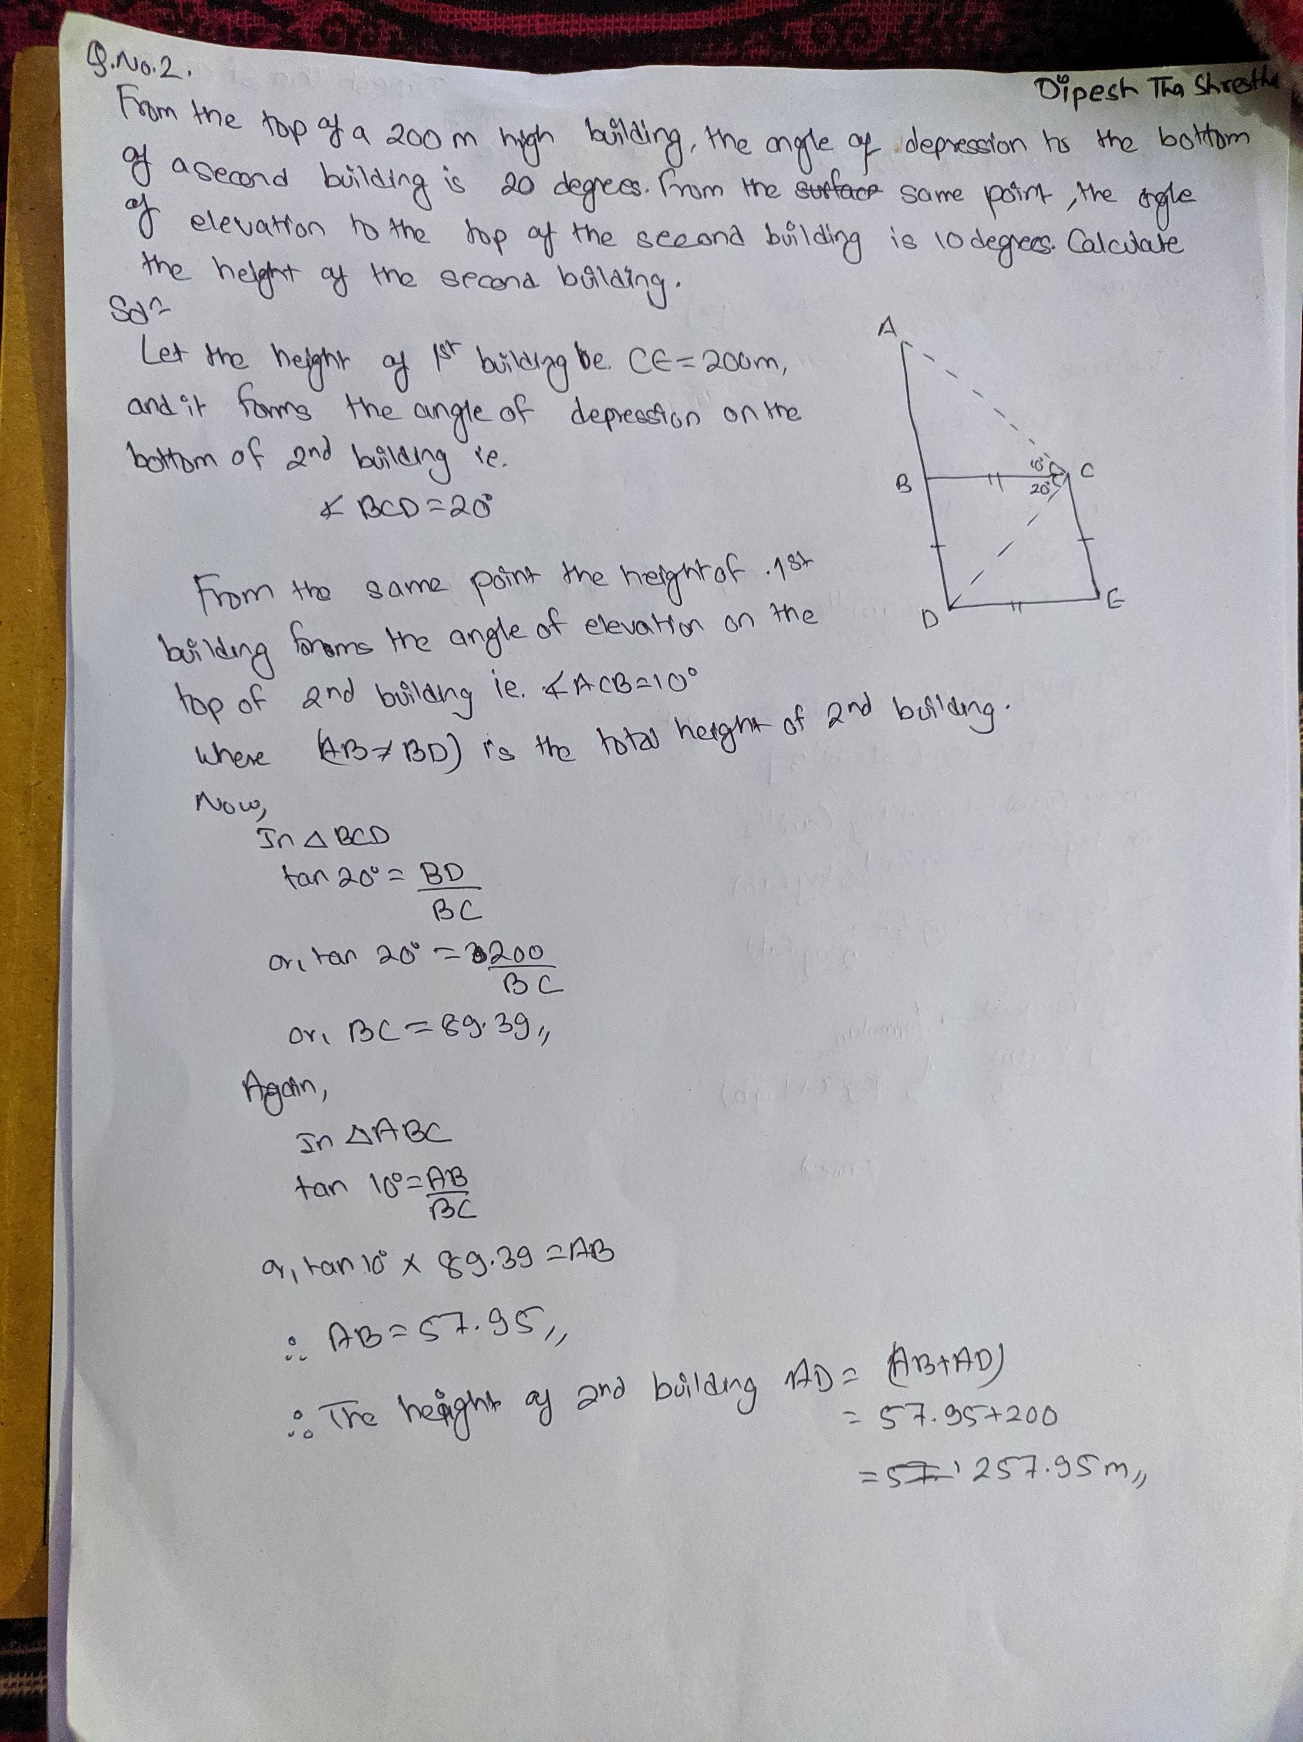 Q.No.2.
Dipesh Tha Shrestha
From the top of a 200 m high building, the angle of depression to the bottom
of a second building is 20 degrees. From the surface same point, the angle
of elevation to the top of the second building is 10 degrees. Calculate
the height of the second building.
Solⁿ
Let the height of 1st building be. CE = 200m,
and it forms the angle of depression on the
bottom of 2nd building ie.
∡ BCD = 20°
A
B
10°
20°
C
D
E
From the same point the height of 1st
building forms the angle of elevation on the
top of 2nd building ie. ∡ACB = 10°
where (AB + BD) is the total height of 2nd building.
Now,
In △ BCD
tan 20° = BD
BC
or, tan 20° = 200
BC
or, BC = 89.39,,
Again,
In △ABC
tan 10° = AB
BC
or, tan 10° × 89.39 = AB
∴ AB = 57.95,,
∴ The height of 2nd building AD = (AB+AD)
= 57.95+200
= 57. 257.95 m,,